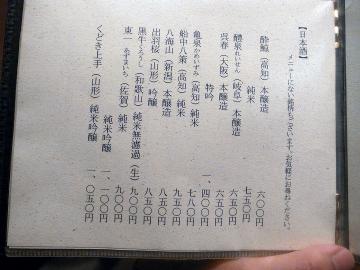 【日本酒】
メニューにない銘柄もございます。お気軽にお尋ねください。
酔鯨（高知）本醸造 六〇〇円
純米 七五〇円
醴泉れいせん（岐阜）本醸造 六五〇円
呉春（大阪）本醸造 六五〇円
特吟 一、四〇〇円
亀泉かめいずみ（高知）純米 七八〇円
船中八策（高知）純米 九五〇円
八海山（新潟）本醸造 八五〇円
出羽桜（山形）吟醸 八五〇円
黒牛くろうし（和歌山）純米無濾過（生）九〇〇円
東一あずまいち（佐賀）純米 九〇〇円
純米吟醸 一、一〇〇円
くどき上手（山形）純米吟醸 一、〇五〇円